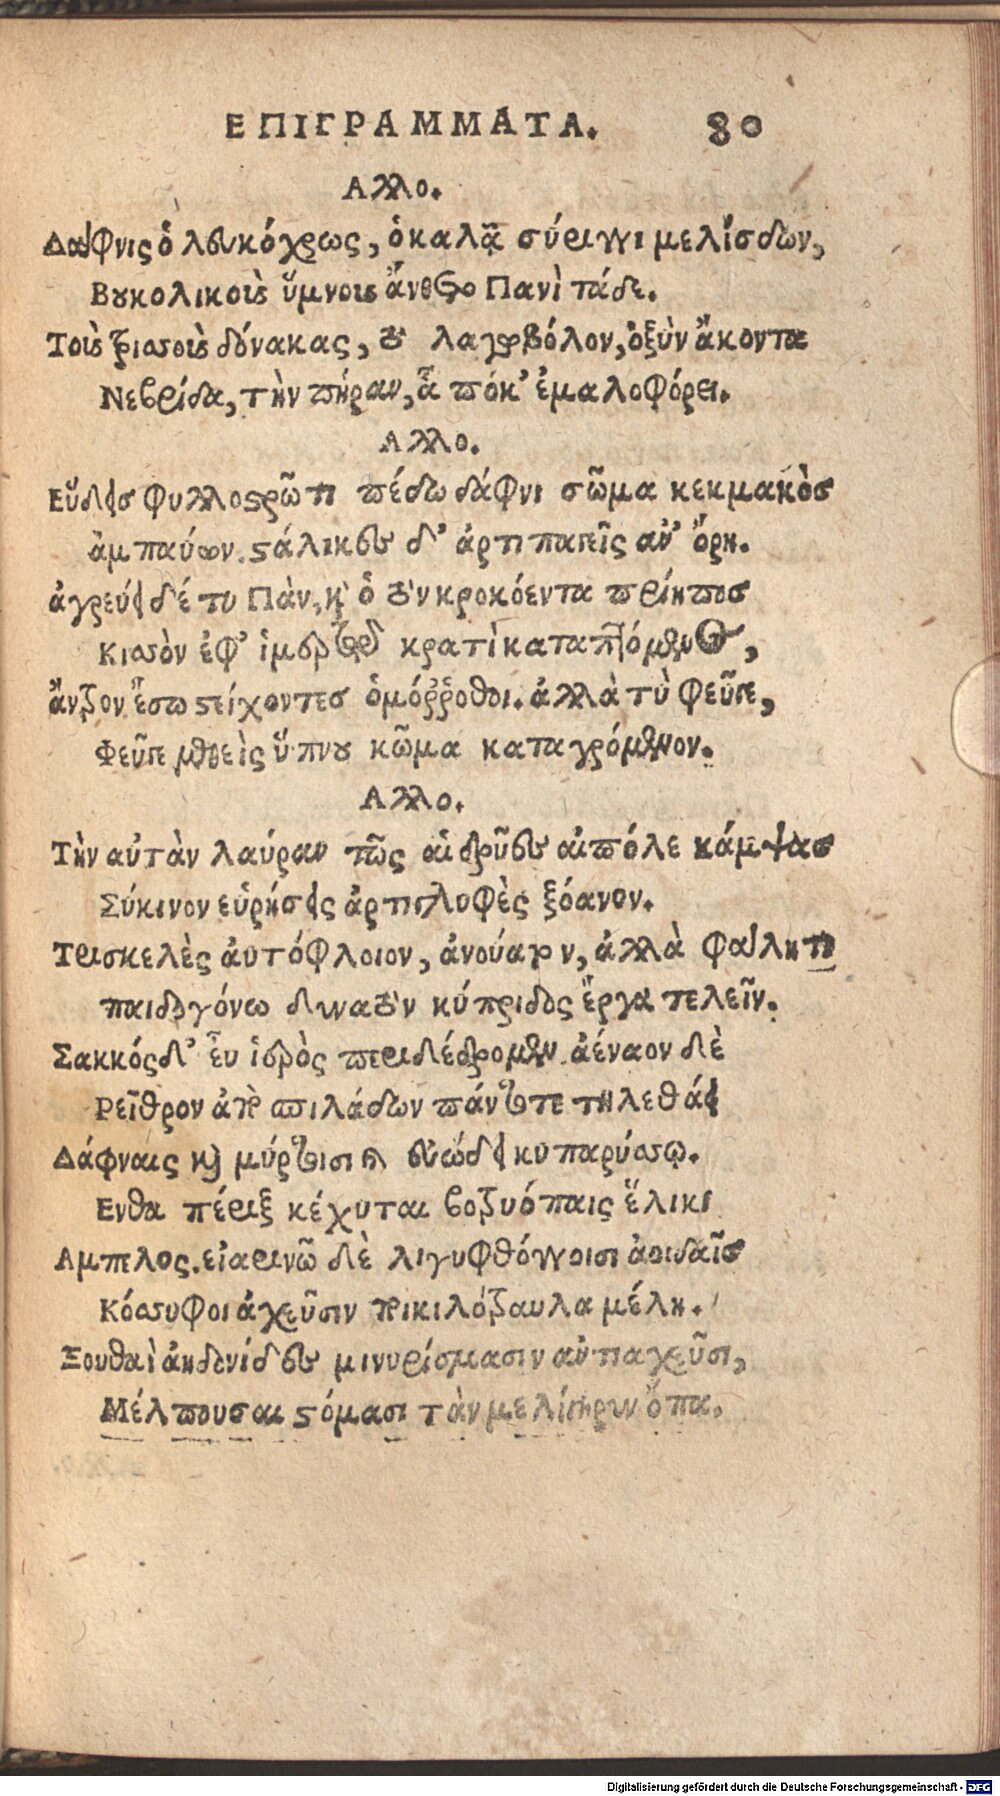 ΕΠΙΓΡΑΜΜΑΤΑ. 80
Αλλο.
Δάφνις ὁ λευκόχρως, ὁ καλᾷ σύριγγι μελίσδων,
Βουκολικοῖς ὕμνοις ἄνθετο Πανὶ τάδε.
Τοὺς τριοσοὺς δόνακας, τὸ λαγωβόλον, ὀξὺν ἄκοντα
Νεβρίδα, τὴν πήραν, ᾇ πόκ' ἐμαλοφόρει.
Αλλο.
Εὕδεις φυλλοστρῶτι πέδω δάφνι σῶμα κεκμακὸς
ἀμπαύων. στάλικες δ' ἀρτιπαγεῖς ἀν' ὄρη.
ἀγρεύει δέ τυ Πὰν, καὶ ὁ τὸν κροκόεντα πρίηπος
Κισσὸν ἐφ' ἱμερτῷ κρατὶ καταπτόμενος,
ἄντρον ἔσω στείχοντες ὁμόρροθοι. ἀλλὰ τὺ φεῦγε,
Φεῦγε μεθεὶς ὕπνου κῶμα καταγρόμενον.
Αλλο.
Τὴν αὐτὰν λαύραν τῶς αἱ δρῦες αἰπόλε κάμψας
Σύκινον εὑρήσεις ἀρτιγλυφὲς ξόανον.
Τρισκελὲς αὐτόφλοιον, ἀνούατον, ἀλλὰ φάλητι
παιδογόνω δυνατὸν κύπριδος ἔργα τελεῖν.
Σακκός δ' εὖ ἱερὸς περιδέδρομεν. ἀέναον δὲ
Ρεῖθρον ἀπὸ σπιλάδων πάντοτε τηλεθάει
Δάφναις καὶ μύρτοισι καὶ εὐώδει κυπαρίσσῳ.
Ενθα πέριξ κέχυται βοτρυόπαις ἕλικι
Αμπελος. εἰαρινῶ δὲ λιγυφθόγγοισι ἀοιδαῖς
Κόσσυφοι ἀχεῦσιν ποικιλότραυλα μέλη.
Ξουθαὶ ἀηδονίδες μινυρίσμασιν ἀνταχεῦσι,
Μέλπουσαι στόμασι τὰν μελίγηρυν ὄπα.
Digitalisierung gefördert durch die Deutsche Forschungsgemeinschaft - DFG